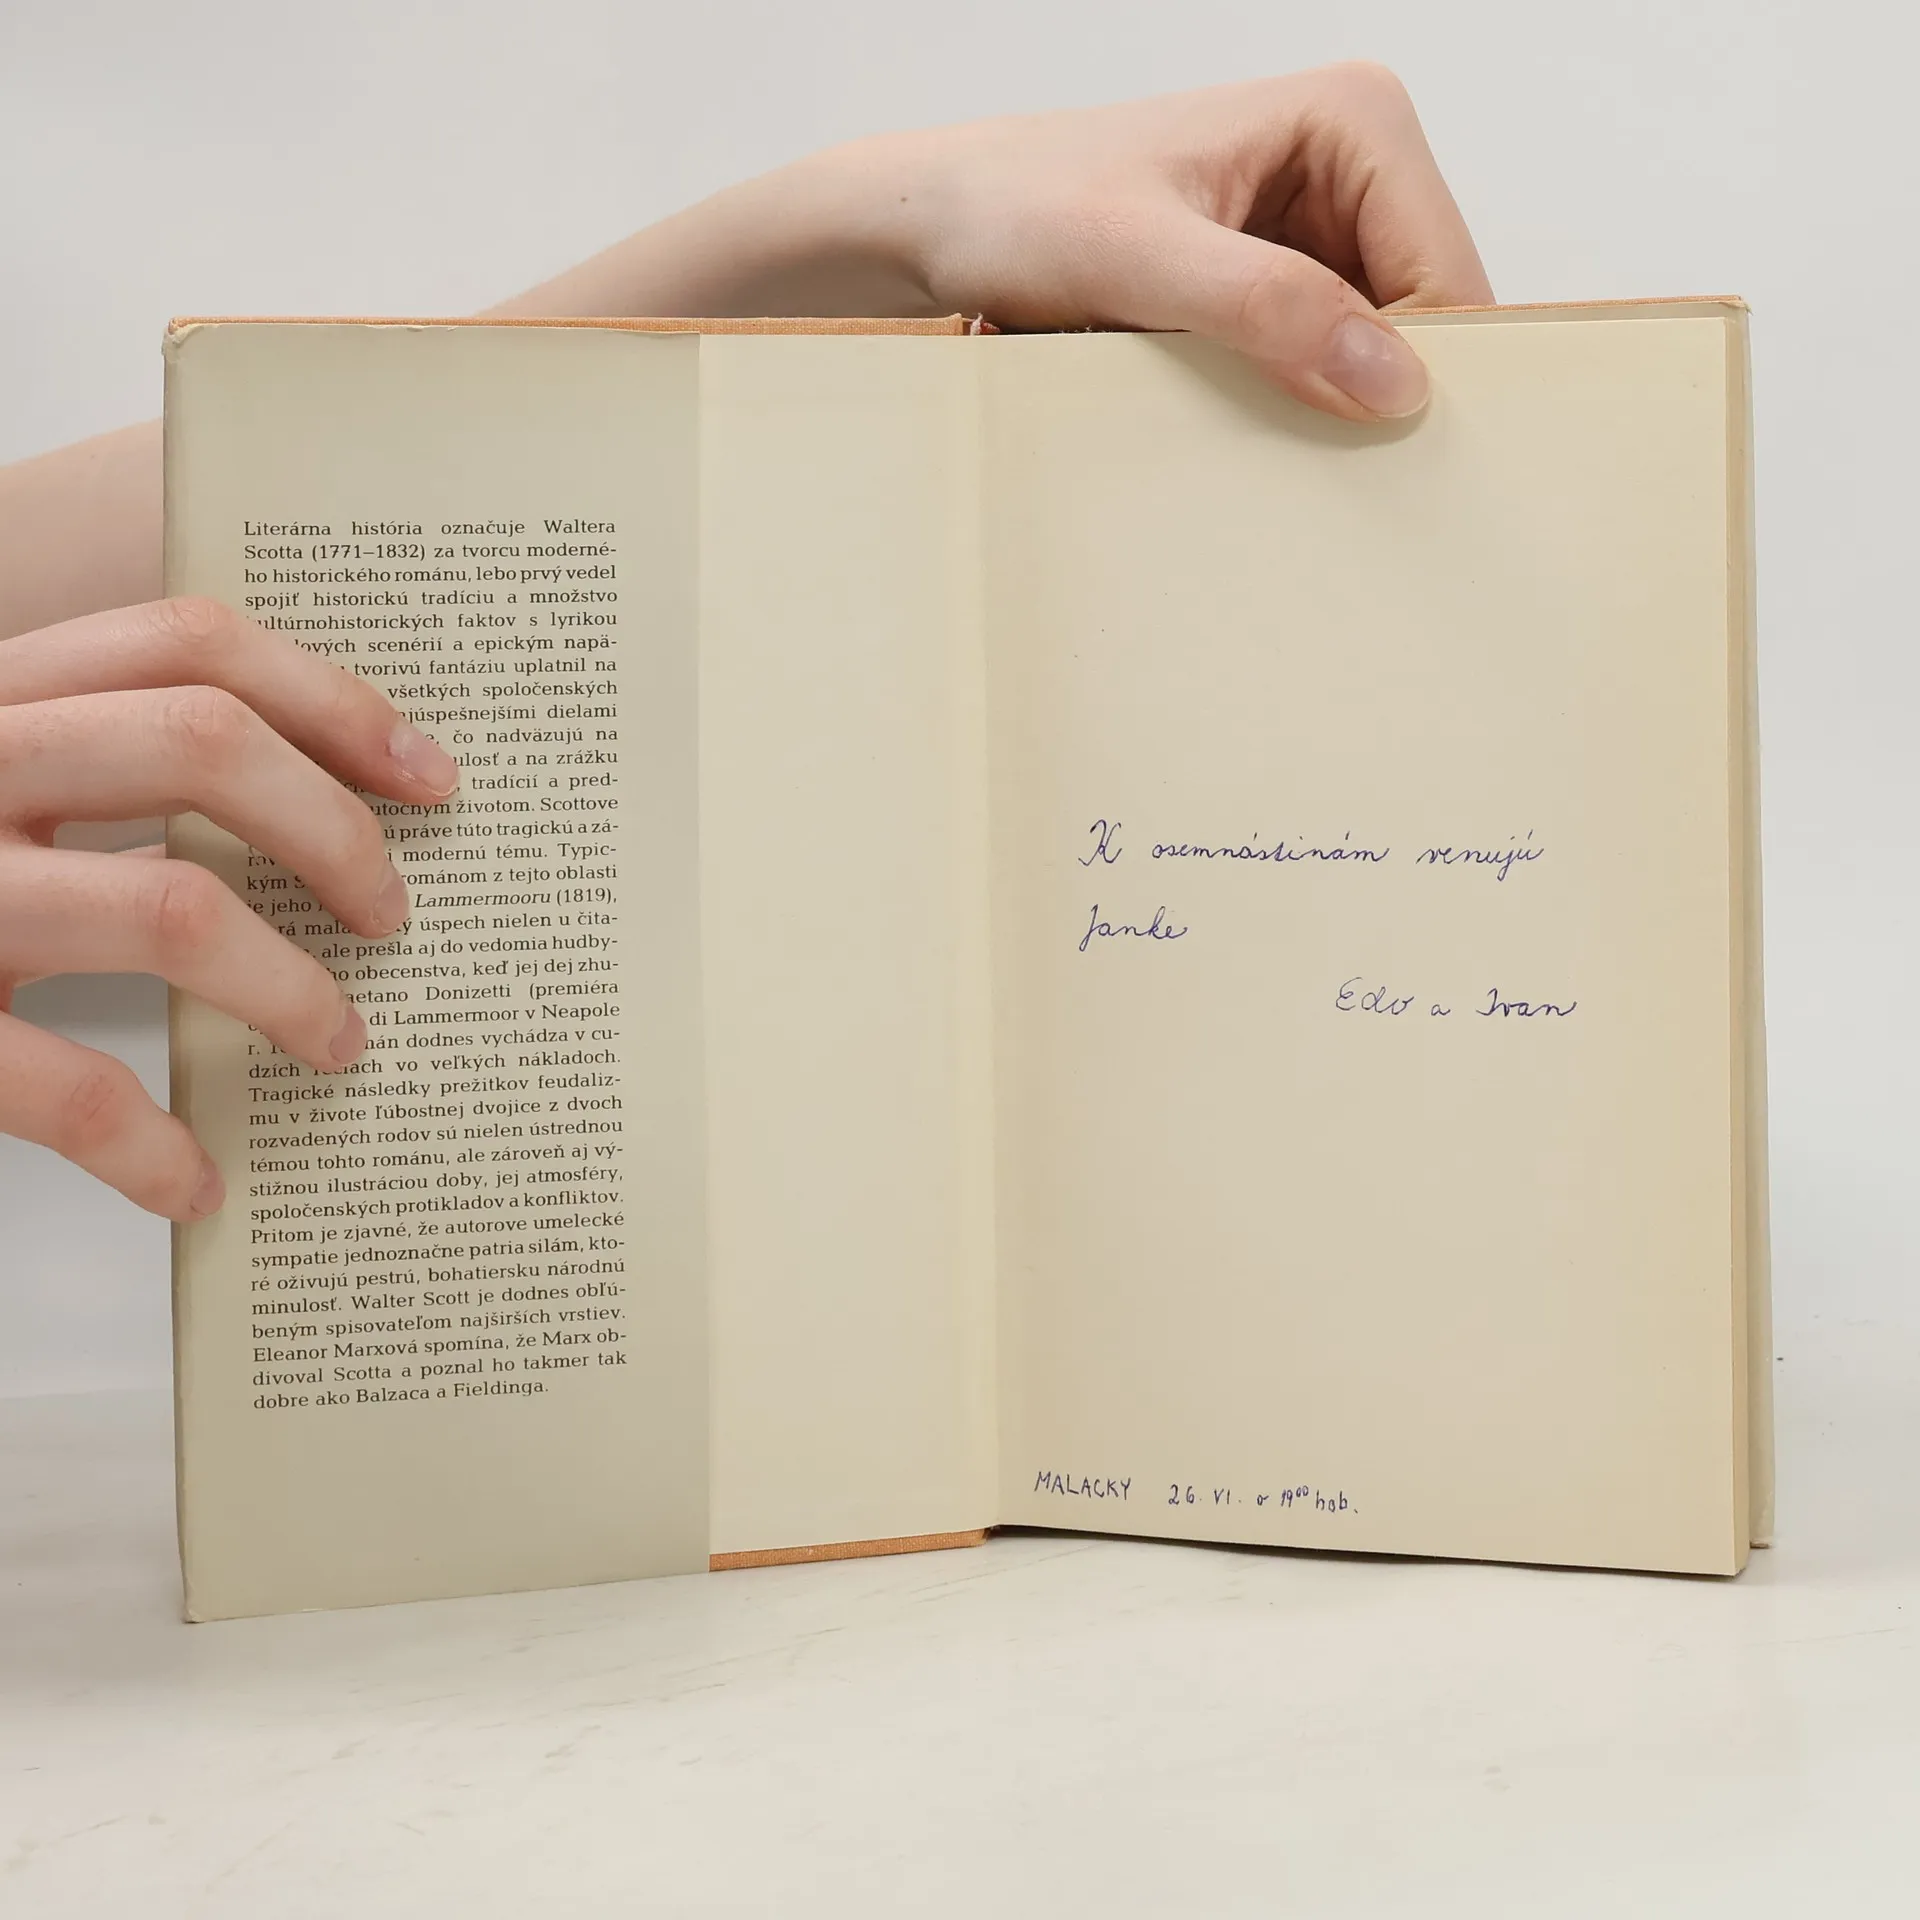 Literárna história označuje Waltera
Scotta (1771–1832) za tvorcu moderné-
ho historického románu, lebo prvý vedel
spojiť historickú tradíciu a množstvo
ultúrnohistorických faktov s lyrikou
lových scenérií a epickým napä-
tvorivú fantáziu uplatnil na
všetkých spoločenských
ajúspešnejšími dielami
čo nadväzujú na
ulosť a na zrážku
tradícií a pred-
utočným životom. Scottove
ú práve túto tragickú a zá-
i modernú tému. Typic-
kým S ománom z tejto oblasti
je jeho Lammermooru (1819),
rá mala ý úspech nielen u čita-
ale prešla aj do vedomia hudby-
ho obecenstva, keď jej dej zhu-
aetano Donizetti (premiéra
di Lammermoor v Neapole
r. mán dodnes vychádza v cu-
dzích rečiach vo veľkých nákladoch.
Tragické následky prežitkov feudaliz-
mu v živote ľúbostnej dvojice z dvoch
rozvadených rodov sú nielen ústrednou
témou tohto románu, ale zároveň aj vý-
stižnou ilustráciou doby, jej atmosféry,
spoločenských protikladov a konfliktov.
Pritom je zjavné, že autorove umelecké
sympatie jednoznačne patria silám, kto-
ré oživujú pestrú, bohatiersku národnú
minulosť. Walter Scott je dodnes obľú-
beným spisovateľom najširších vrstiev.
Eleanor Marxová spomína, že Marx ob-
divoval Scotta a poznal ho takmer tak
dobre ako Balzaca a Fieldinga.
K osemnástinám venujú
Janke
Edo a Ivan
MALACKY 26. VI. o 19⁰⁰ hob.